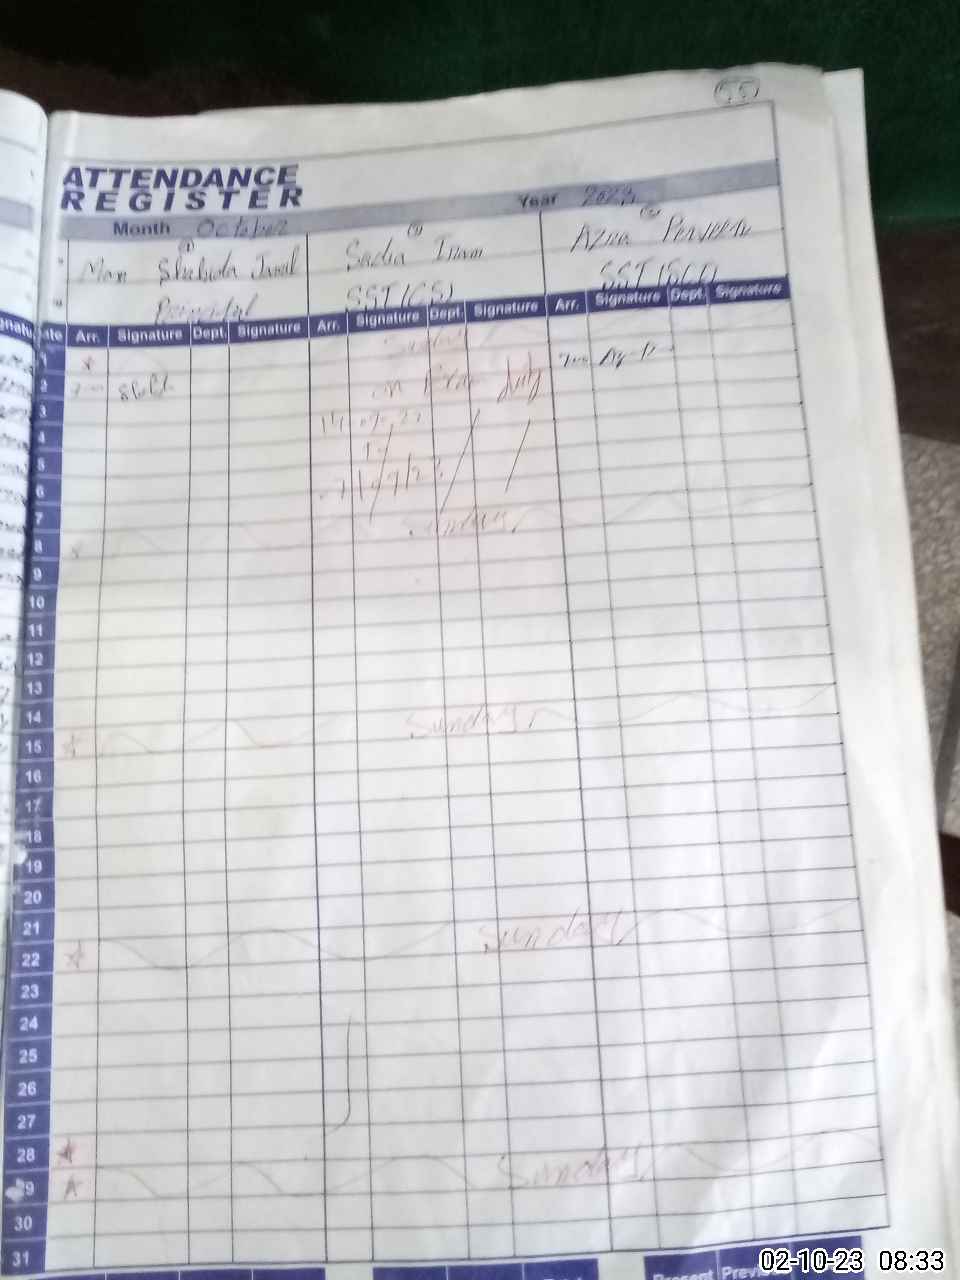 55
ATTENDANCE
REGISTER
Year 2023
Month October
1 2 3
Mam Shahida Jamal Sadia Inam Azra Perveen
Principal SST (CS) SST (SCI)
Arr. Signature Dept. Signature Arr. Signature Dept. Signature Arr. Signature Dept. Signature
1 Sunday
2 on Exam duty
3
4
5
6
7
8 Sunday
9
10
11
12
13
14
15 Sunday
16
17
18
19
20
21
22 Sunday
23
24
25
26
27
28
29 Sunday
30
31
Present
02-10-23 08:33